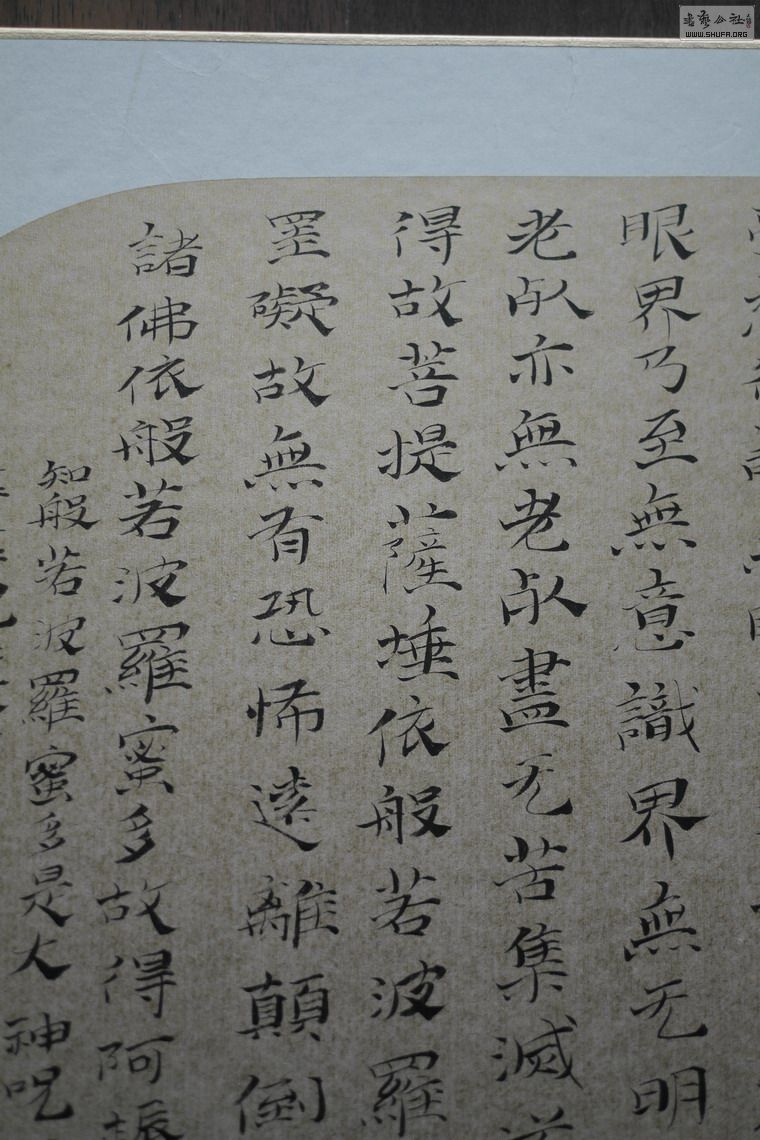 眼界乃至無意識界無无明
老死亦無老死盡无苦集滅道
得故菩提薩埵依般若波羅
罣礙故無有恐怖遠離顛倒
諸佛依般若波羅蜜多故得阿
知般若波羅蜜多是大神呪
書藝公社
WWW.SHUFA.ORG